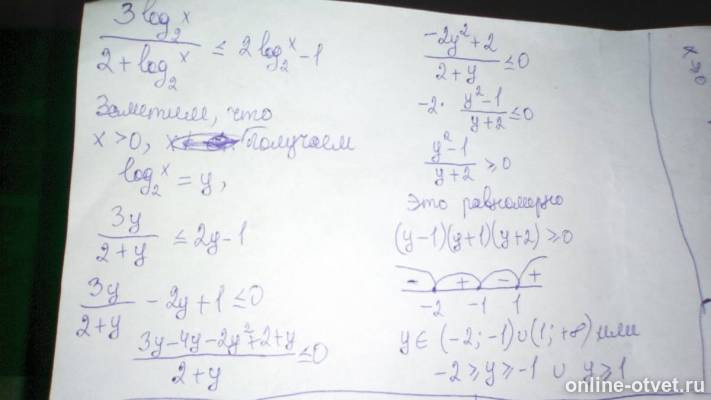 3 log₂ˣ / (2 + log₂ˣ) ≤ 2 log₂ˣ - 1
Заметим, что
x > 0, x получаем
log₂ˣ = y,
3y / (2 + y) ≤ 2y - 1
3y / (2 + y) - 2y + 1 ≤ 0
(3y - 4y - 2y² + 2 + y) / (2 + y) ≤ 0
(-2y² + 2) / (2 + y) ≤ 0
-2 · (y² - 1) / (y + 2) ≤ 0
(y² - 1) / (y + 2) ≥ 0
Это равномерно
(y - 1)(y + 1)(y + 2) ≥ 0
- + - +
-2 -1 1
y ∈ (-2; -1) ∪ (1; +∞) или
-2 ≥ y ≥ -1 ∪ y ≥ 1
online-otvet.ru